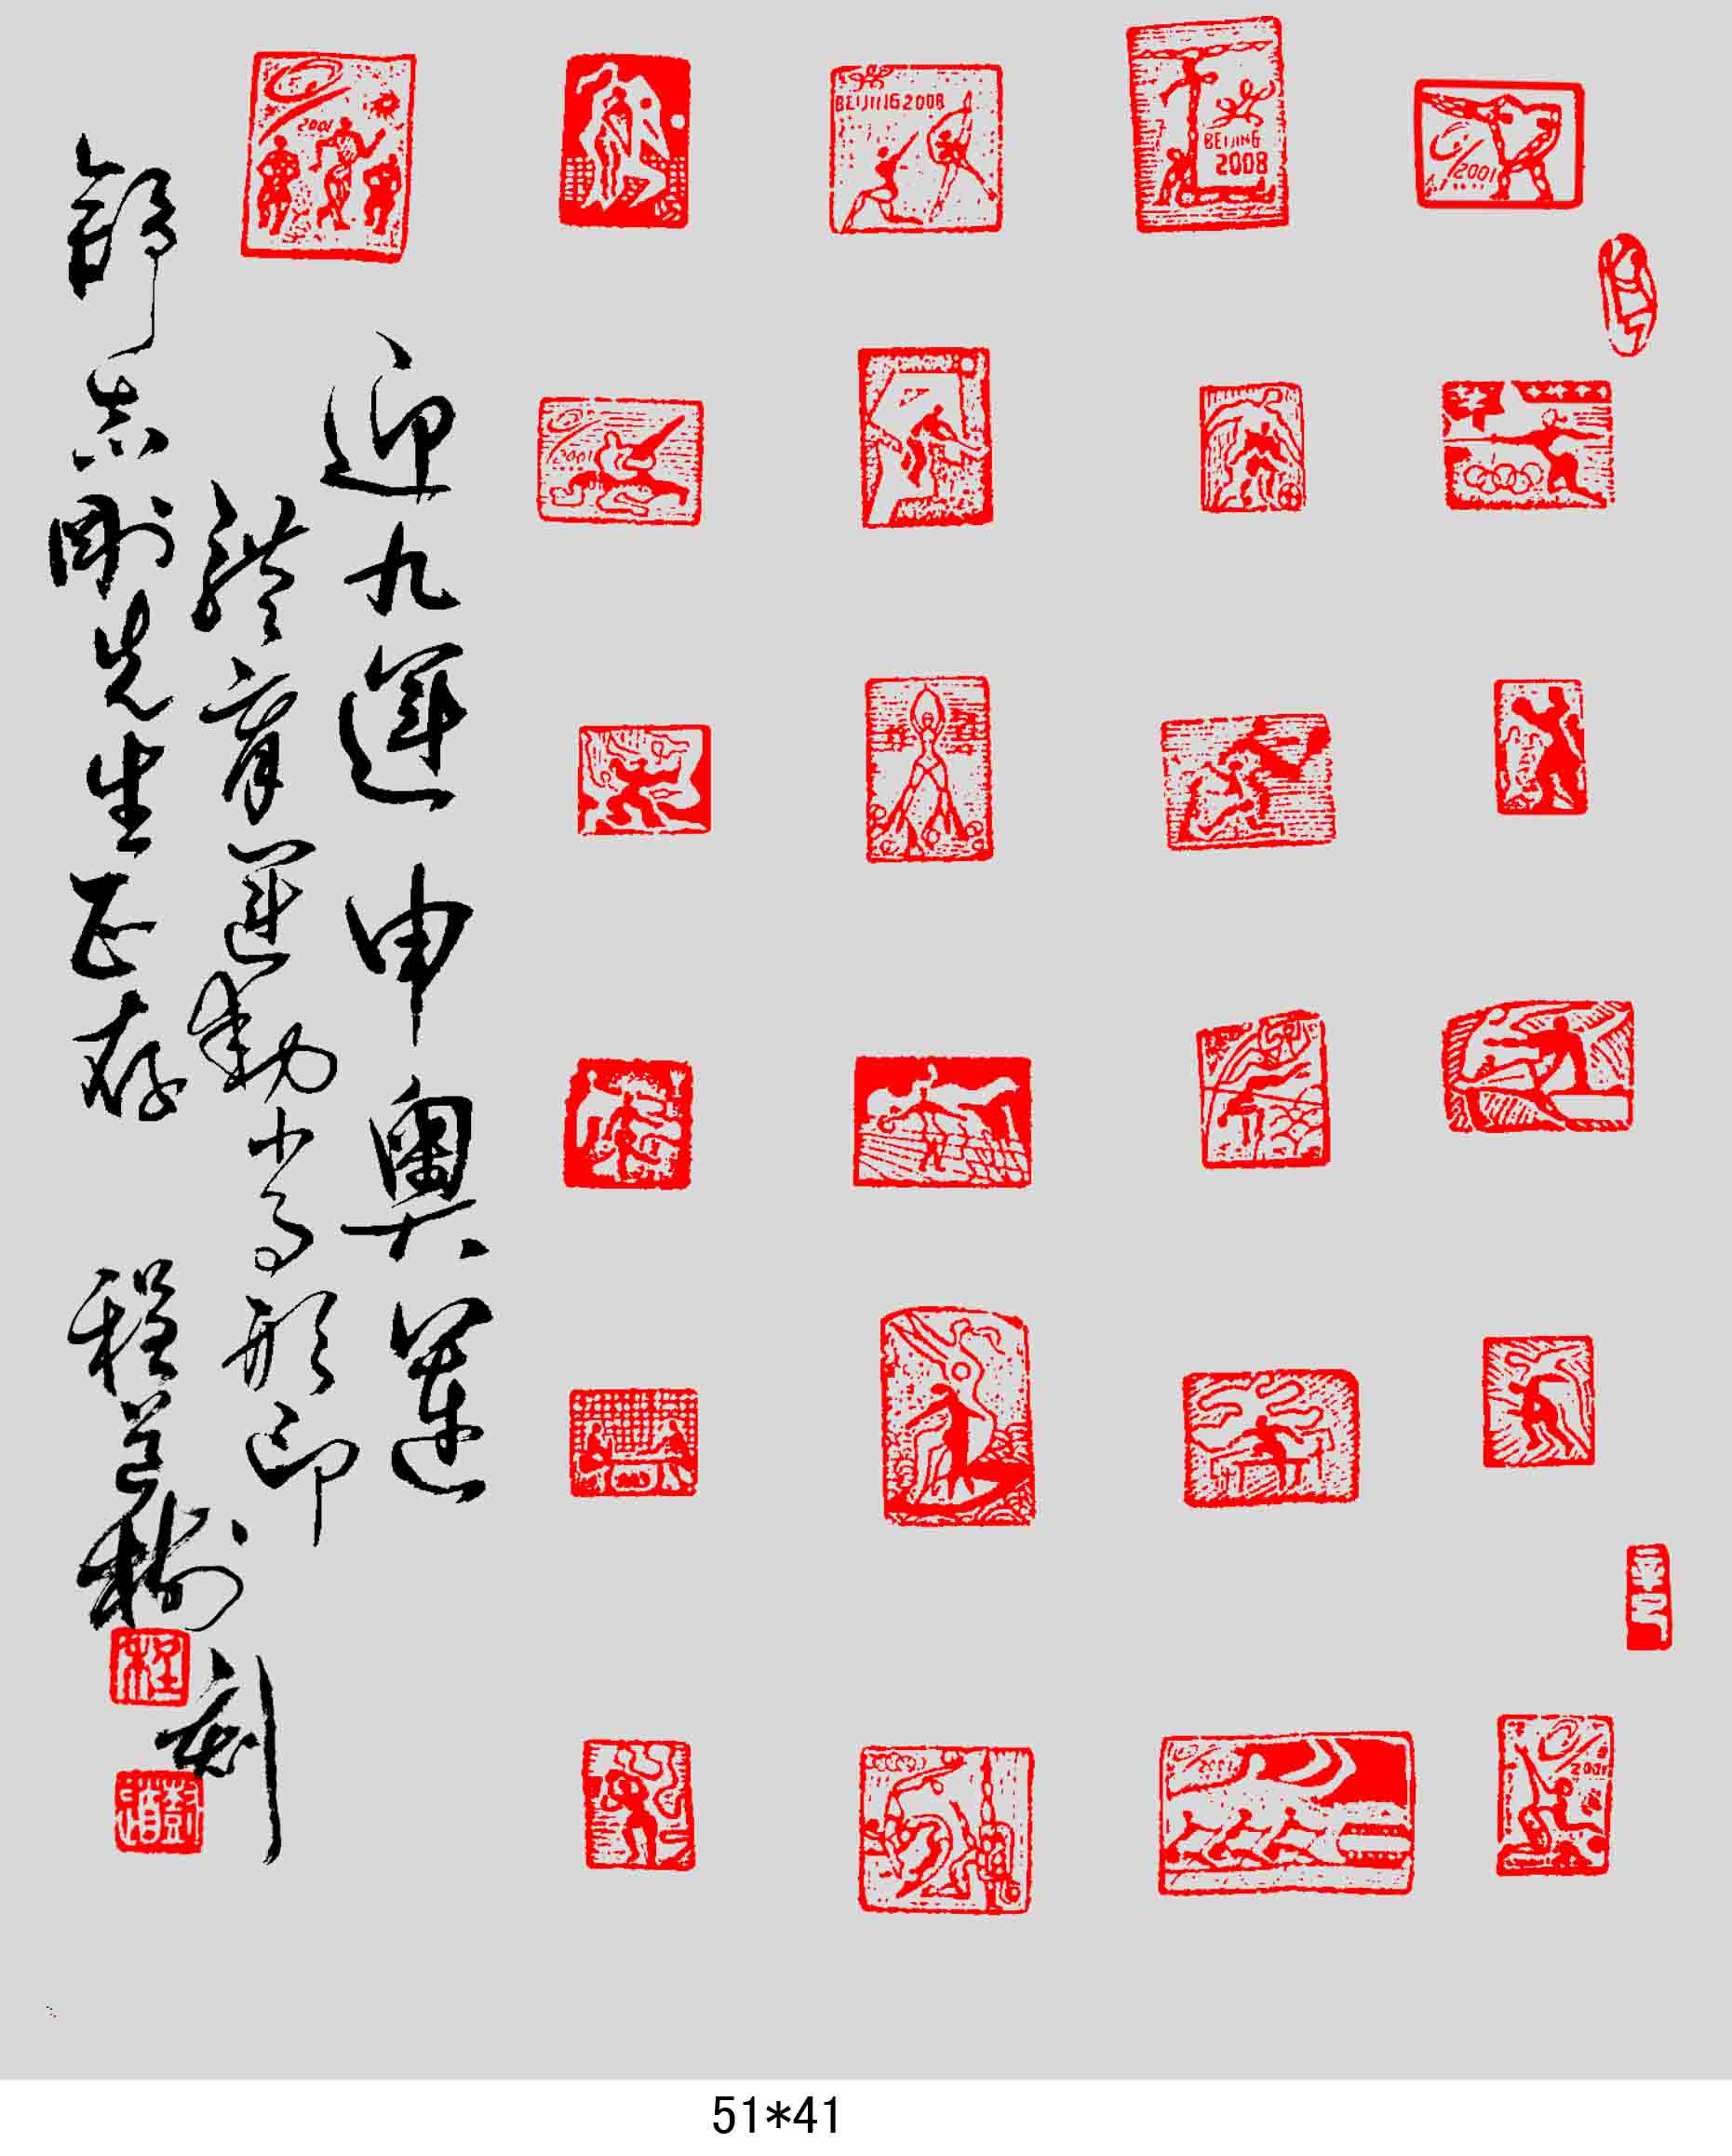 迎九運申奧運
體育運動肖形印
舒志剛先生正存 程道樹刻
程
2001
BEIJING 2008
BEIJING
2008
2001
2001
辛巳
2001
2001
51*41